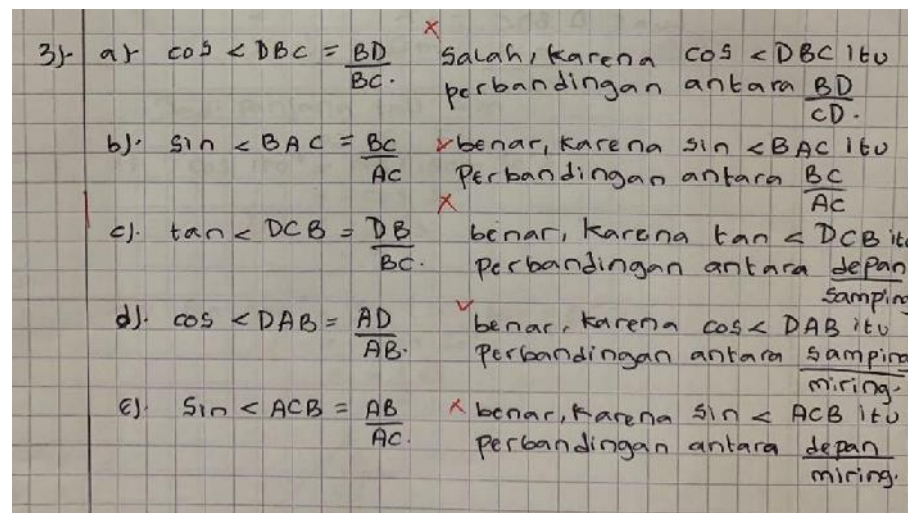 3). a). cos < DBC = BD/BC. Salah, karena cos < DBC itu
perbandingan antara BD/CD.
b). sin < BAC = BC/AC benar, karena sin < BAC itu
Perbandingan antara BC/AC
c). tan < DCB = DB/BC. benar, karena tan < DCB itu
perbandingan antara depan/samping
d). cos < DAB = AD/AB. benar, karena cos < DAB itu
Perbandingan antara samping/miring.
e). Sin < ACB = AB/AC. benar, karena sin < ACB itu
perbandingan antara depan/miring.